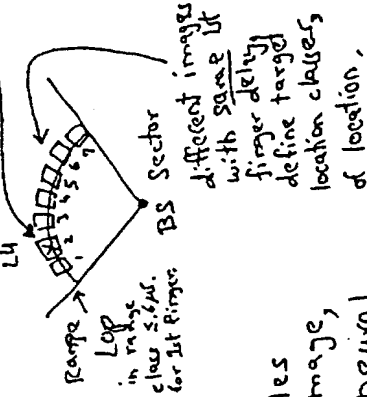 L4
1 2 3 4 5 6 7
Range
LOP
in range
class 5.6 µs.
for 1st finger.
BS Sector
different images
with same 1st
finger delay
define target
location classes,
of location.
les
mage,
neural